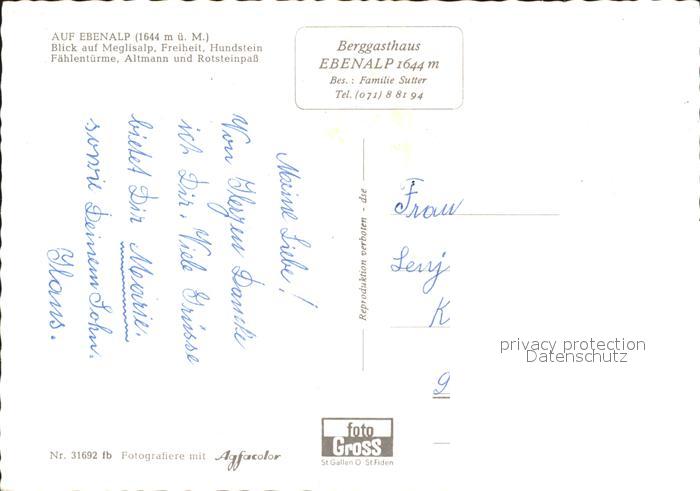 AUF EBENALP (1644 m ü. M.)
Blick auf Meglisalp, Freiheit, Hundstein
Fählentürme, Altmann und Rotsteinpaß
Berggasthaus
EBENALP 1644 m
Bes.: Familie Sutter
Tel. (071) 8 81 94
Meine Liebe!
Von Herzen Danke
ich Dir. Viele Grüsse
bietet Dir Marie.
sowie Deinem Sohn.
Hans.
Reproduktion verboten - dse
Frau
Lenj
K
9
privacy protection
Datenschutz
foto
Gross
St Gallen O St Fiden
Nr. 31692 fb Fotografiere mit Agfacolor